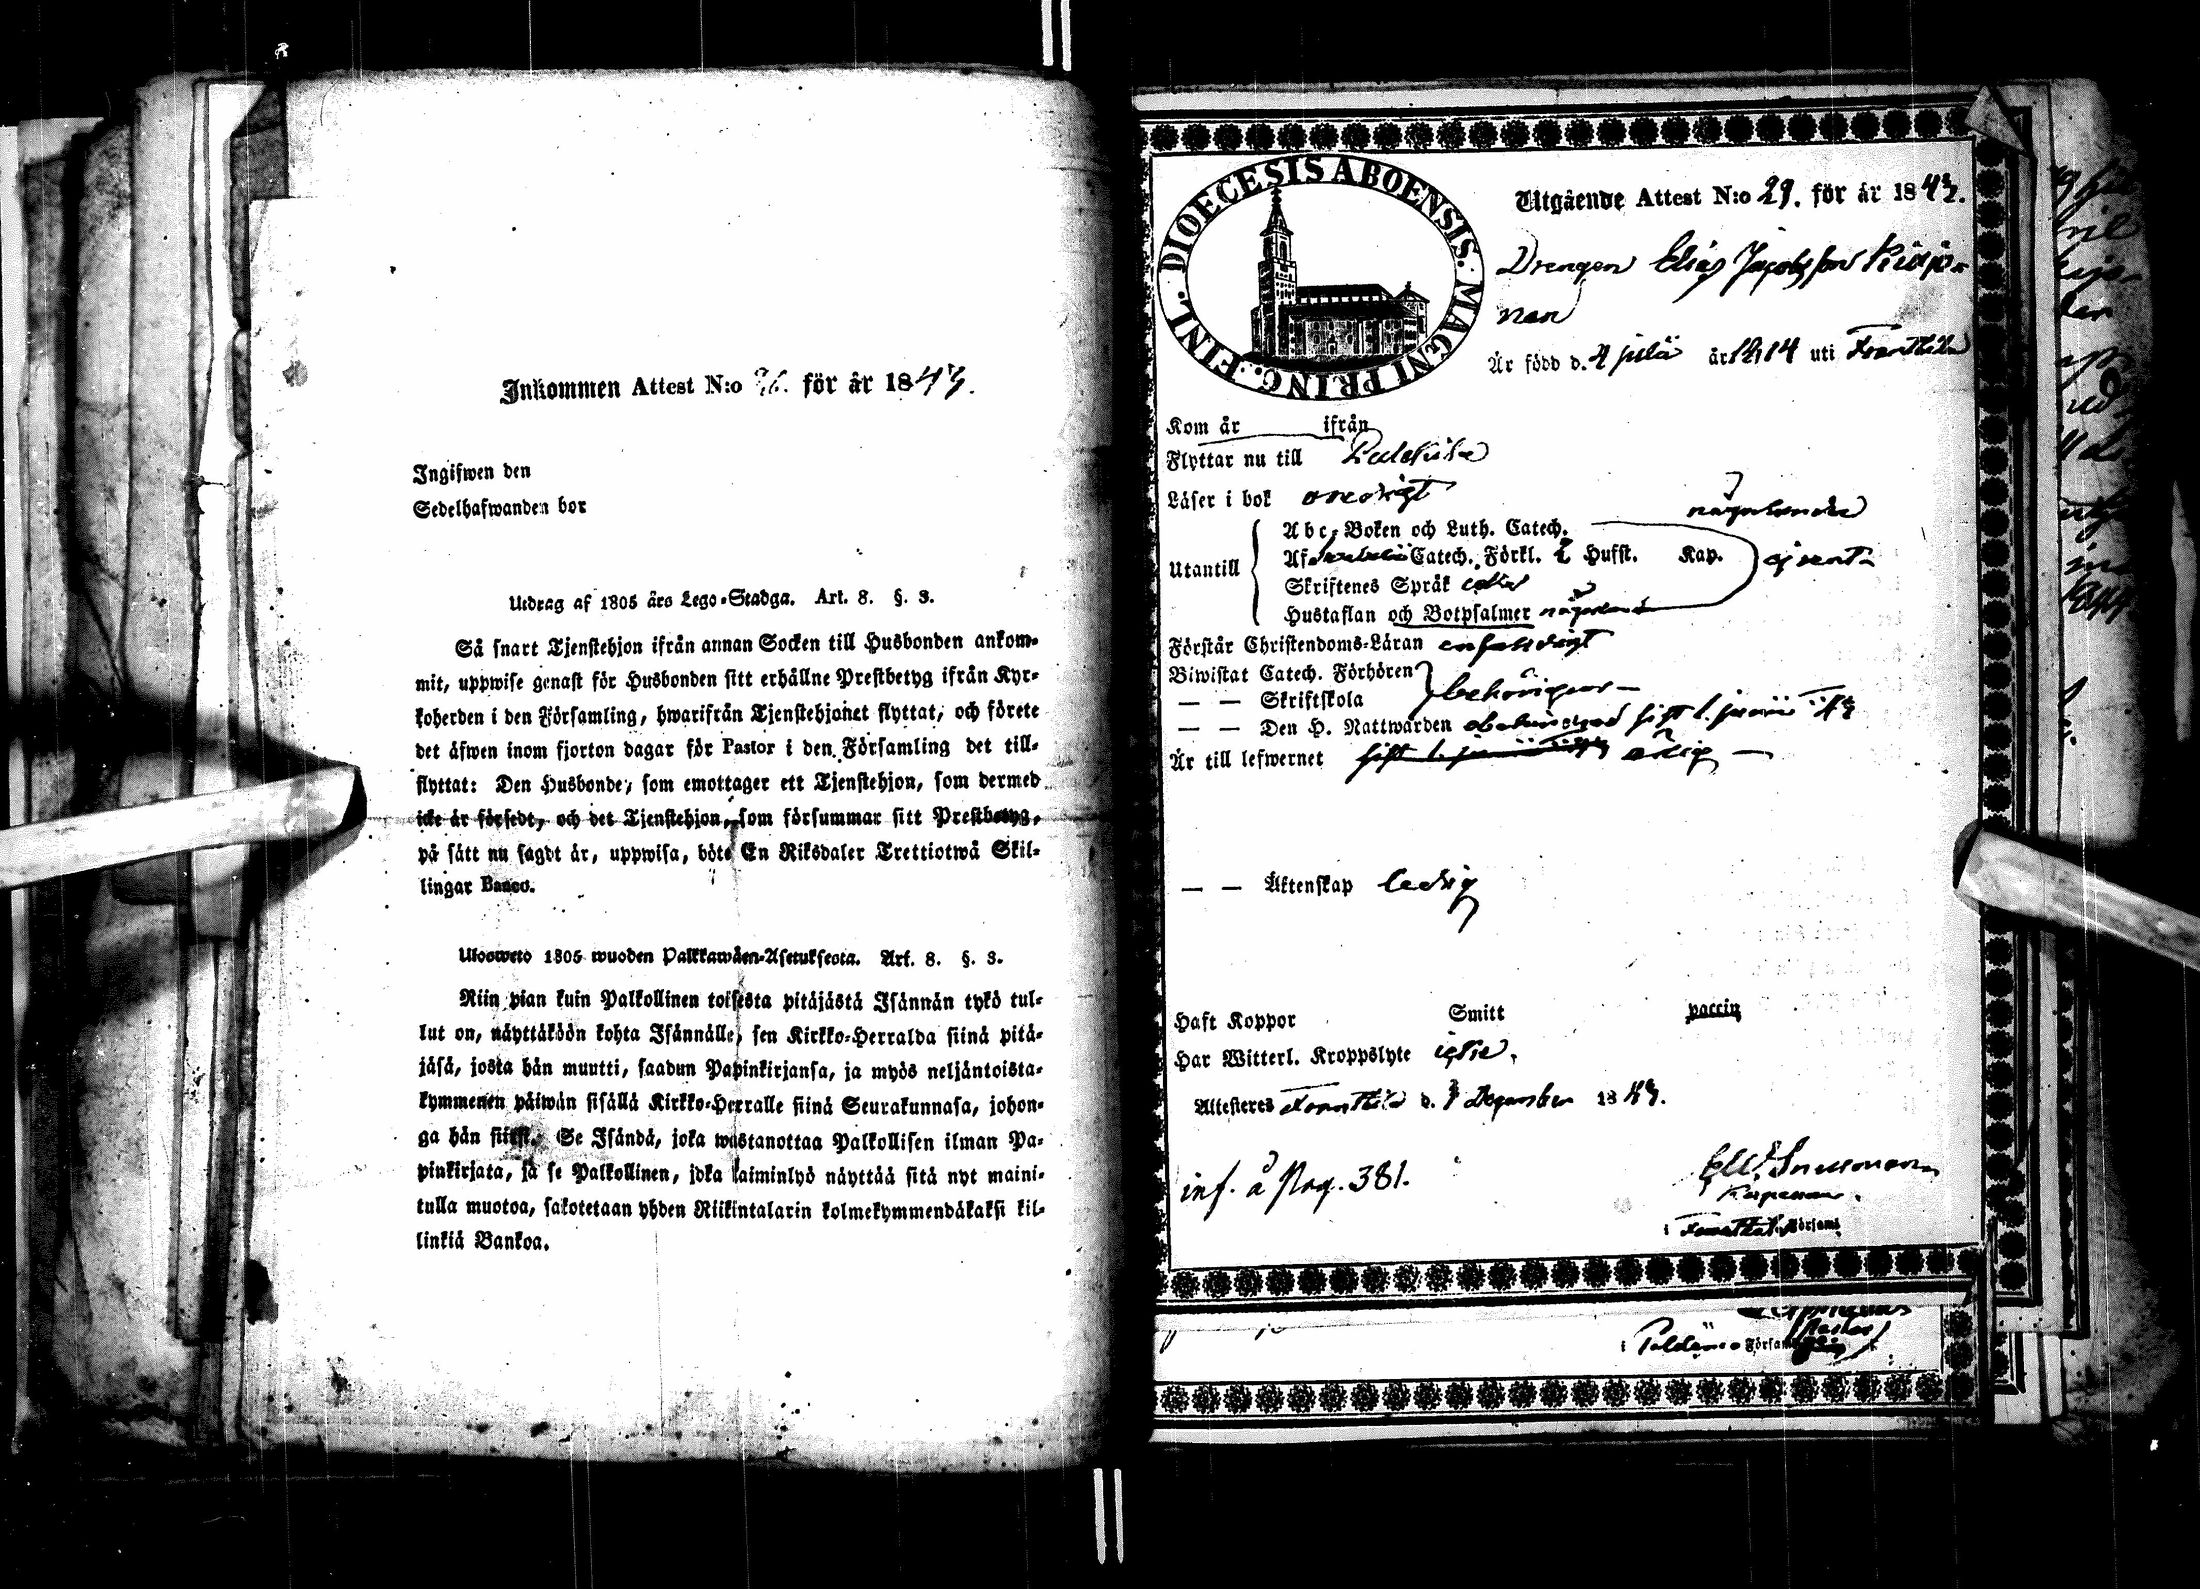 Inkommen Attest N:o för år 1843.
Ingifwen den
Sedelhafwanden bor
Utdrag af 1805 års Lego-Stadga. Art. 8. §. 3.
Så snart Tjenstehjon ifrån annan Socken till Husbonden ankom-
mit, uppwise genast för Husbonden sitt erhållne Prestbetyg ifrån Kyr-
koherden i den Församling, hwarifrån Tjenstehjonet flyttat, och förete
det äfwen inom fjorton dagar för Pastor i den Församling det till-
flyttat: Den Husbonde, som emottager ett Tjenstehjon, som dermed
icke är försedt, och det Tjenstehjon, som försummar sitt Prestbetyg,
på sätt nu sagdt är, uppwisa, böte En Riksdaler Trettiotwå Skil-
lingar Banco.
Ulosweto 1805 wuoden Palkkawäen-Asetuksesta. Art. 8. §. 3.
Niin pian kuin Palkollinen toisesta pitäjästä Isännän tykö tul-
lut on, näyttäköön kohta Isännälle, sen Kirkko-Herralda siinä pitä-
jäsä, josta hän muutti, saadun Papinkirjansa, ja myös neljäntoista-
kymmenen päiwän sisällä Kirkko-Herralle siinä Seurakunnasa, johon-
ga hän siirsi. Se Isändä, joka wastanottaa Palkollisen ilman Pa-
pinkirjata, ja se Palkollinen, joka laiminlyö näyttää sitä nyt maini-
tulla muotoa, sakotetaan yhden Riikintalarin kolmekymmendäkaksi kil-
linkiä Bankoa.
DIOECESIS ABOENSIS. MAGNI PRINC. FINL.
Utgående Attest N:o 29. för år 1843.
Drengen Elias Jacobsson
nen
Är född d. 4 julii år 1814 uti Frantsila
Kom år ifrån
Flyttar nu till Pulkkila
Läser i bok oredigt
någorlunda
Abc-Boken och Luth. Catech.
Utantill Af Catech. Förkl. 2 Hufst. Kap. ej rent
Skriftenes Språk icke
Hustaflan och Botpsalmer någorlunda
Förstår Christendoms-Läran enfaldigt
Biwistat Catech. Förhören
— — Skriftskola behörigen —
— — Den H. Nattwarden obehindrad sist 1. junii 43
Är till lefwernet sist 1. junii 43 ärlig —
— — Äktenskap ledig
Haft Koppor Smitt vaccin
Har Witterl. Kroppslyte icke.
Attesteres Frantsila d. December 1843.
inf. å Pag. 381.
Snellman
Kapellan.
i Frantsila Församl.
i Paldamo Församl.